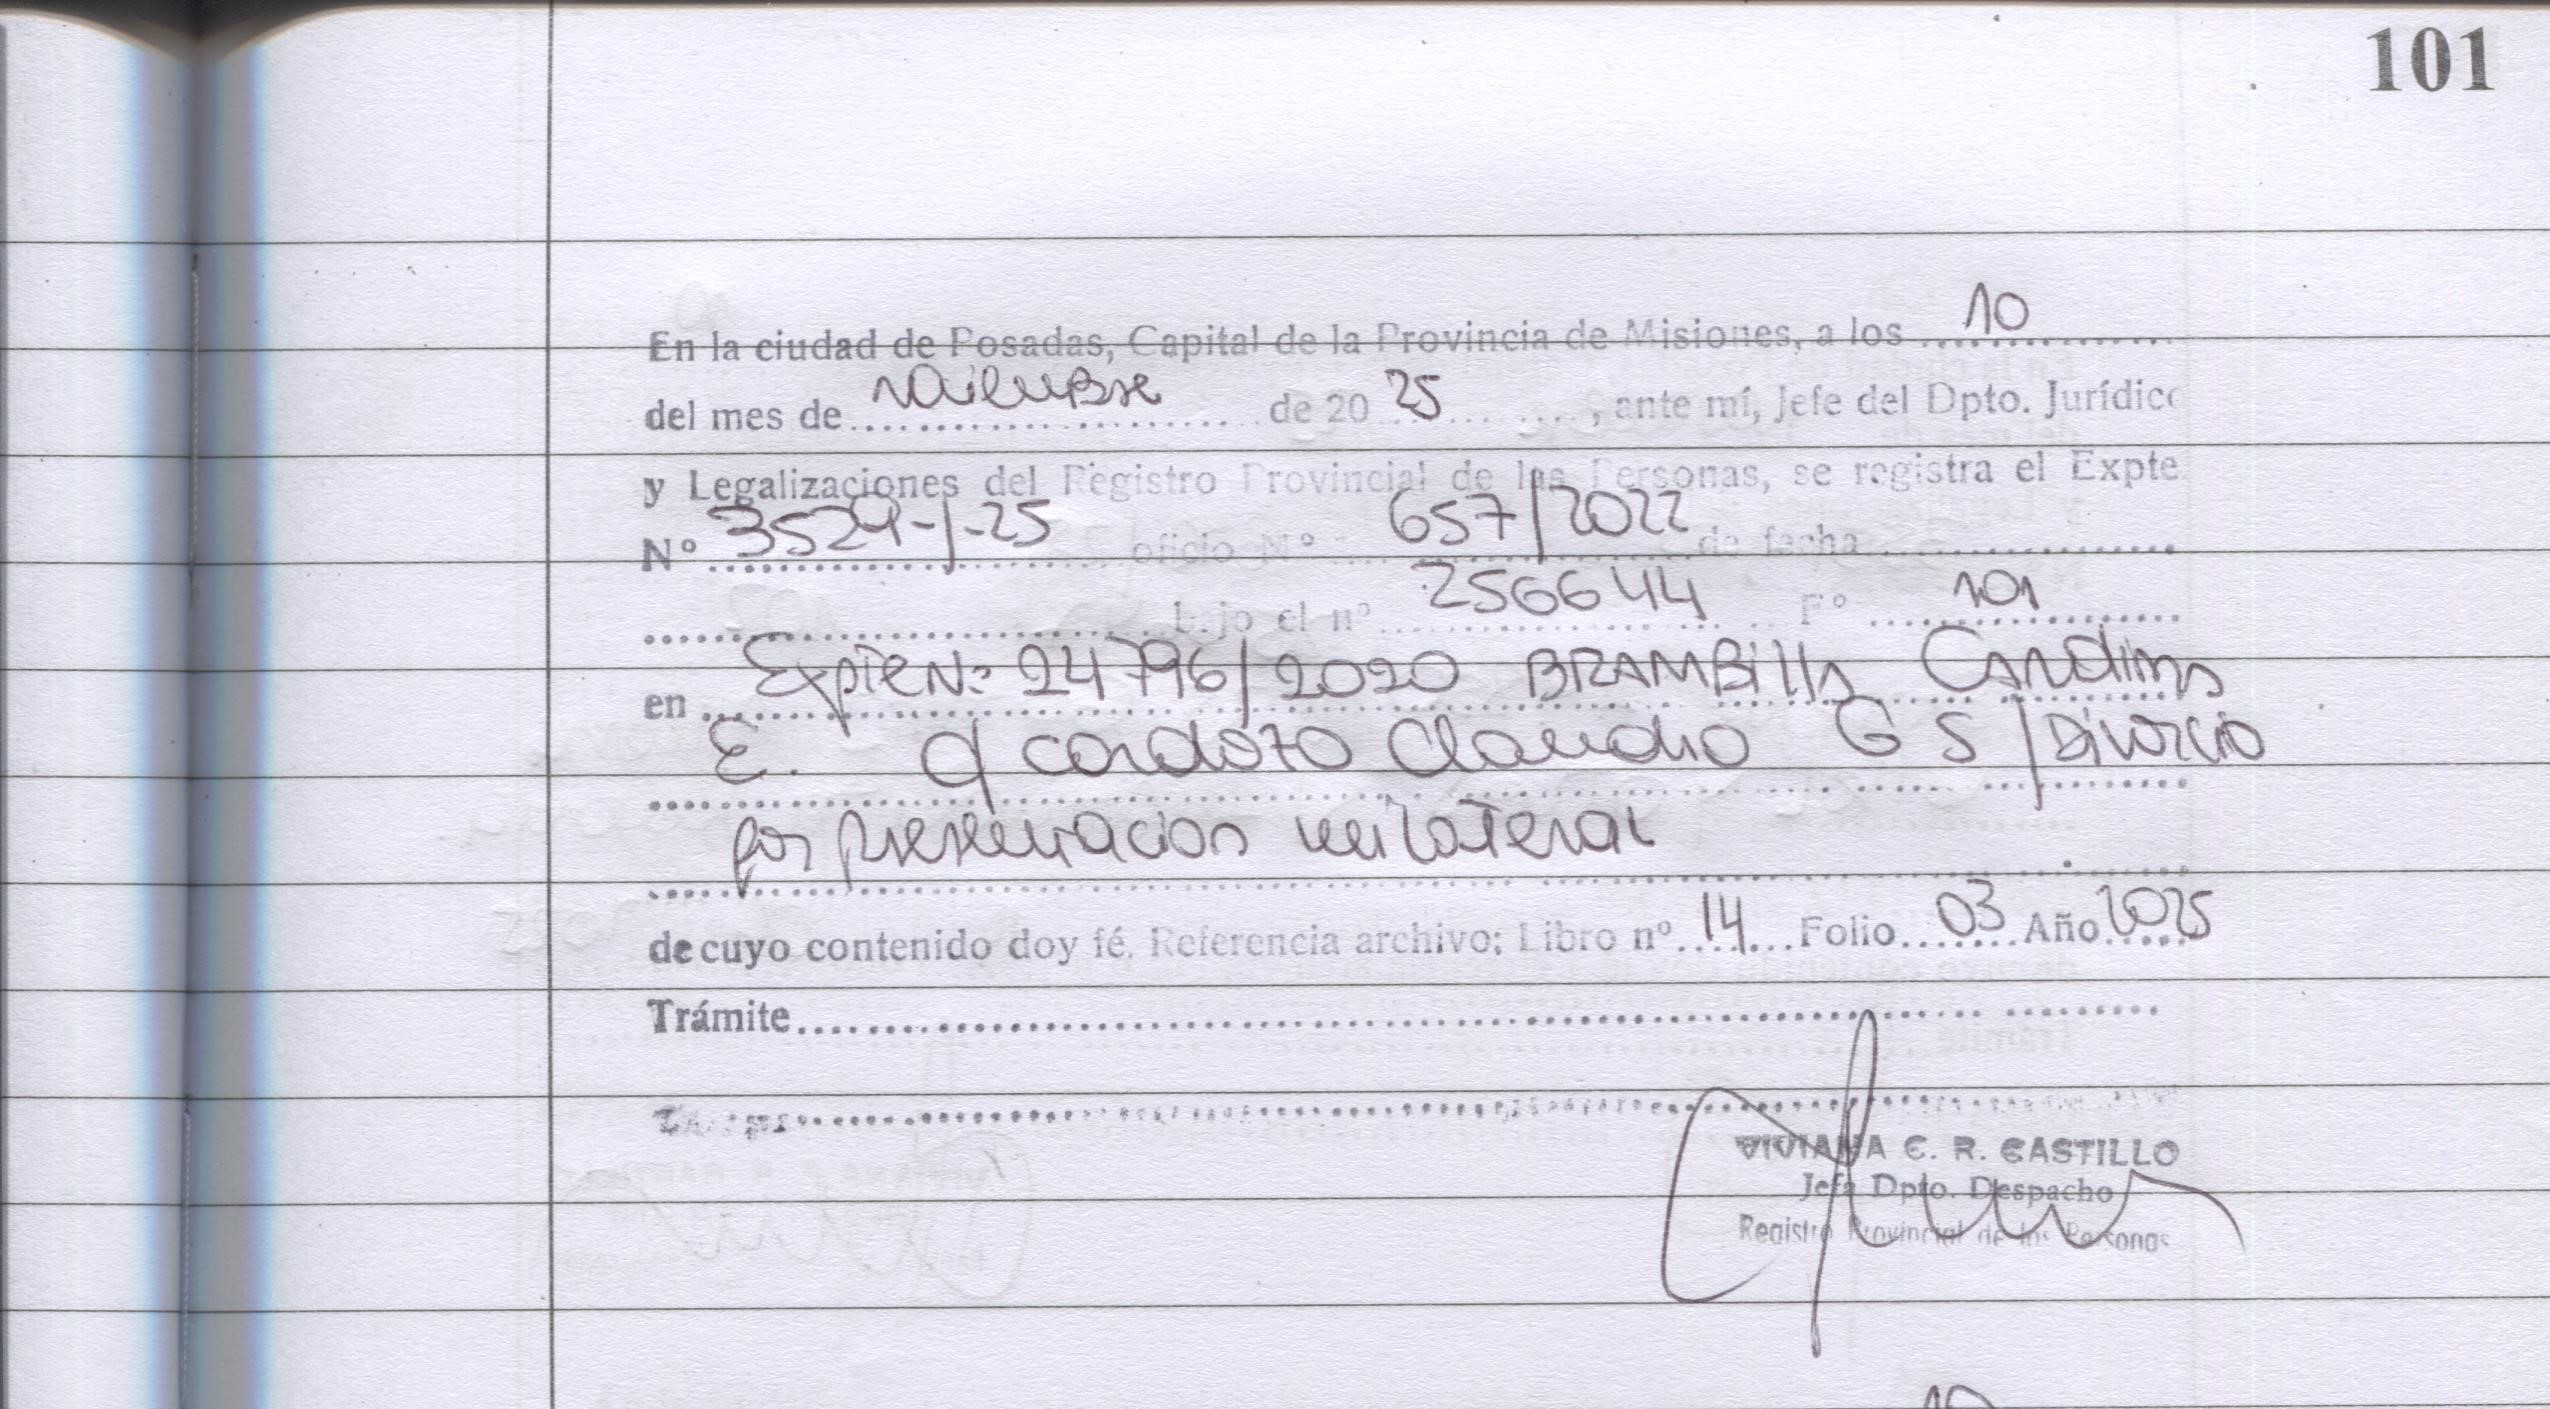 101
En la ciudad de Posadas, Capital de la Provincia de Misiones, a los 10
del mes de de 20 25, ante mí, Jefe del Dpto. Jurídico
y Legalizaciones del Registro Provincial de las Personas, se registra el Expte
Nº 3524-/-25 oficio Nº 657/2022 de fecha
bajo el nº 256644 Fº 101
en Expte Nº 24796/2020 BRAMBilla Carolina
E. c/ Cardozo Claudio G S/Divorcio
por presentacion unilateral
de cuyo contenido doy fé. Referencia archivo: Libro nº 14 Folio 03 Año 2025
Trámite
VIVIANA C. R. CASTILLO
Jefa Dpto. Despacho
Registro Provincial de las Personas